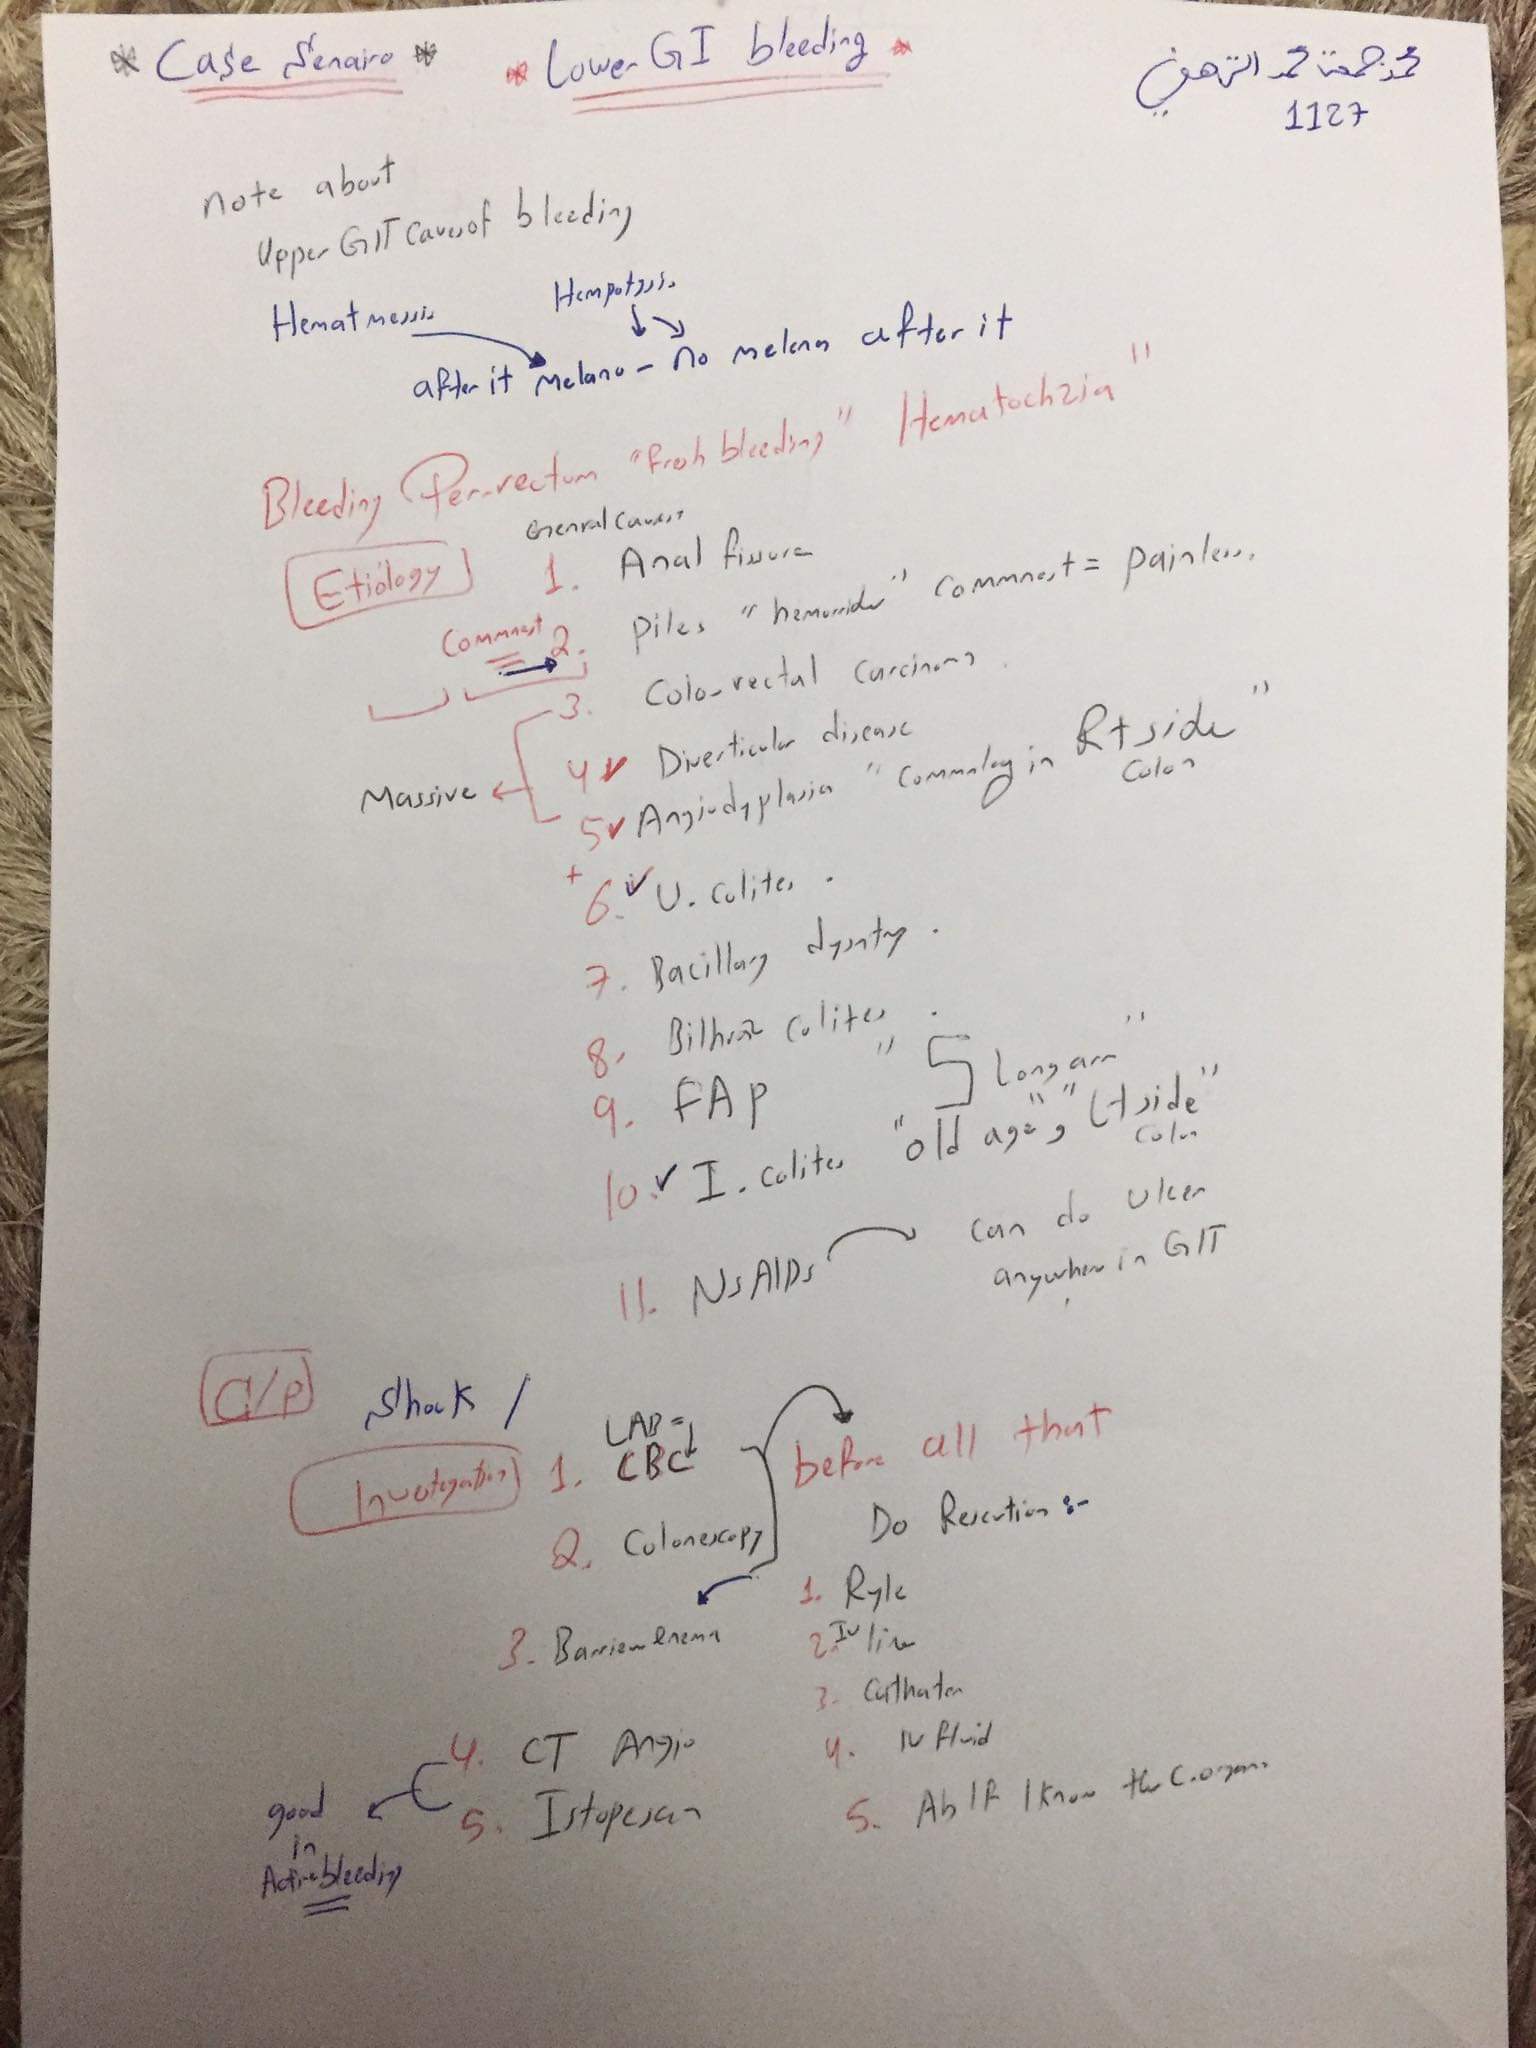 * Case Senairo * * Lower GI bleeding *
1127
note about
Upper GIT causes of bleeding
Hematmessis Hempotysis
after it Melano - no melena after it
Bleeding Per-rectum "fresh bleeding" Hematochzia"
Etiology
Genral causes
1. Anal fissure
Commnest
2. Piles "hemorridus" commnest = painless.
3. Colo-rectal carcinoma.
4 ✓ Diverticular disease
Massive
5 ✓ Angiodyplasia "commnloy in Rt side"
colon
+
6. ✓ U. colites.
7. Bacillary dysntry.
8. Bilhraz colites.
9. FAP "5 long arm"
10. ✓ I. colites "old age", "Lt side"
colon
11. NSAIDs can do ulcer
anywhere in GIT
C/P Shock /
Investegation
LAB =
1. CBC
before all that
Do Rescution :-
2. Colonescopy
1. Ryle
3. Barriem enema
2. IV line
3. Cathater
4. CT Angio
4. IV fluid
5. Istopescan
5. Ab IF I know the C.organ.
good
in
Active bleeding